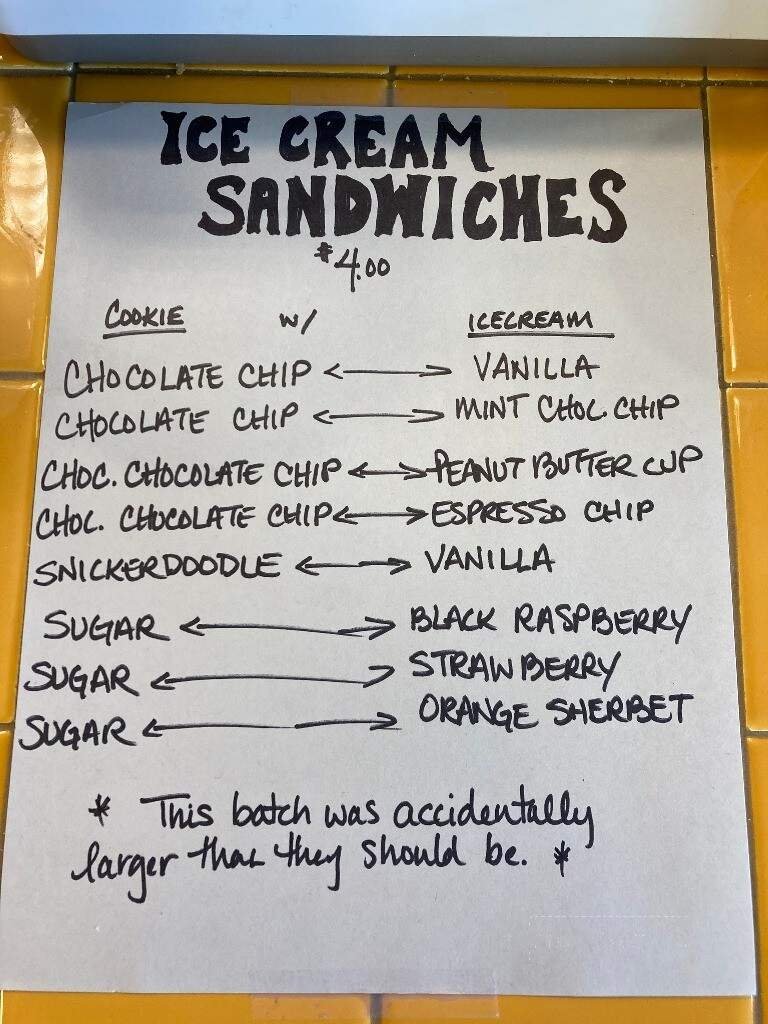 ICE CREAM
SANDWICHES
$4.00
COOKIE w/ ICECREAM
CHOCOLATE CHIP <—> VANILLA
CHOCOLATE CHIP <—> MINT CHOC CHIP
CHOC. CHOCOLATE CHIP <—> PEANUT BUTTER CUP
CHOC. CHOCOLATE CHIP <—> ESPRESSO CHIP
SNICKERDOODLE <—> VANILLA
SUGAR <—> BLACK RASPBERRY
SUGAR <—> STRAWBERRY
SUGAR <—> ORANGE SHERBET
* This batch was accidentally
larger than they should be. *